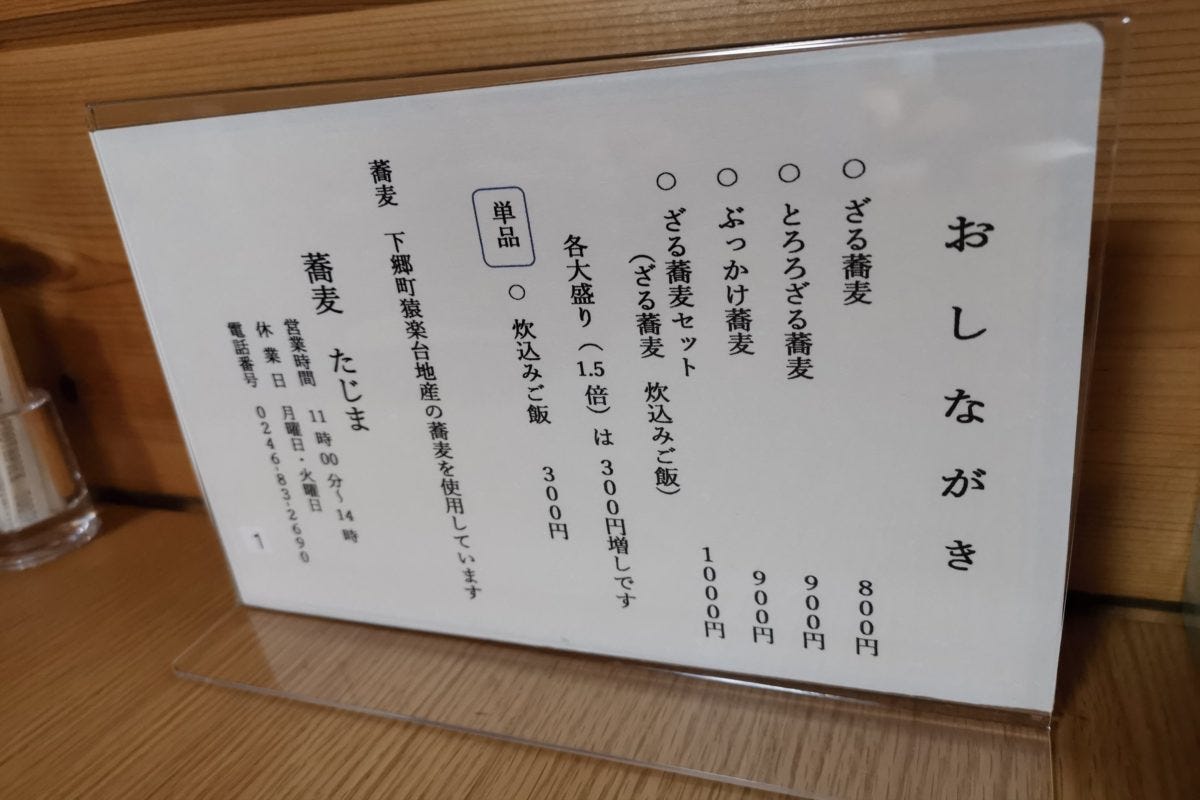 おしながき
○ ざる蕎麦 800円
○ とろろざる蕎麦 900円
○ ぶっかけ蕎麦 900円
○ ざる蕎麦セット 1000円
(ざる蕎麦 炊込みご飯)
各大盛り(1.5倍)は300円増しです
単品 ○ 炊込みご飯 300円
蕎麦 下郷町猿楽台地産の蕎麦を使用しています
蕎麦 たじま
営業時間 11時00分~14時
休業日 月曜日・火曜日
電話番号 0246-83-2690
1